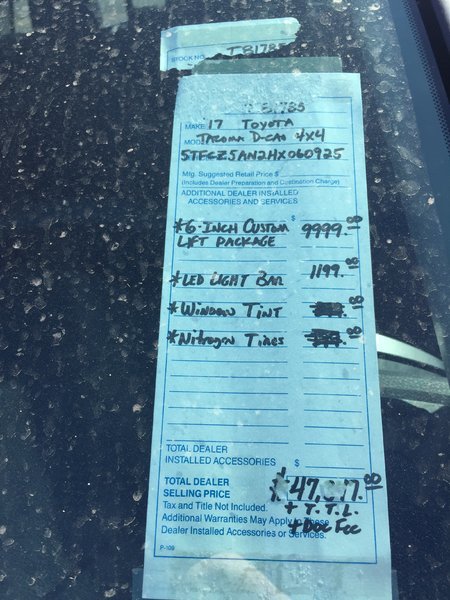 STOCK NO. TB1785
TB1785
MAKE '17 TOYOTA
MODEL TACOMA D-CAB 4X4
5TFCZ5AN2HX060925
Mfg. Suggested Retail Price $
(Includes Dealer Preparation and Destination Charge)
ADDITIONAL DEALER INSTALLED
ACCESSORIES AND SERVICES
$
*6-INCH CUSTOM 9999.18
LIFT PACKAGE
*LED LIGHT BAR 1199.18
*WINDOW TINT .18
*Nitrogen Tires .18
TOTAL DEALER
INSTALLED ACCESSORIES $
TOTAL DEALER
SELLING PRICE
Tax and Title Not Included. + T.T.L.
Additional Warranties May Apply to These + Doc Fee
Dealer Installed Accessories or Services.
P-109